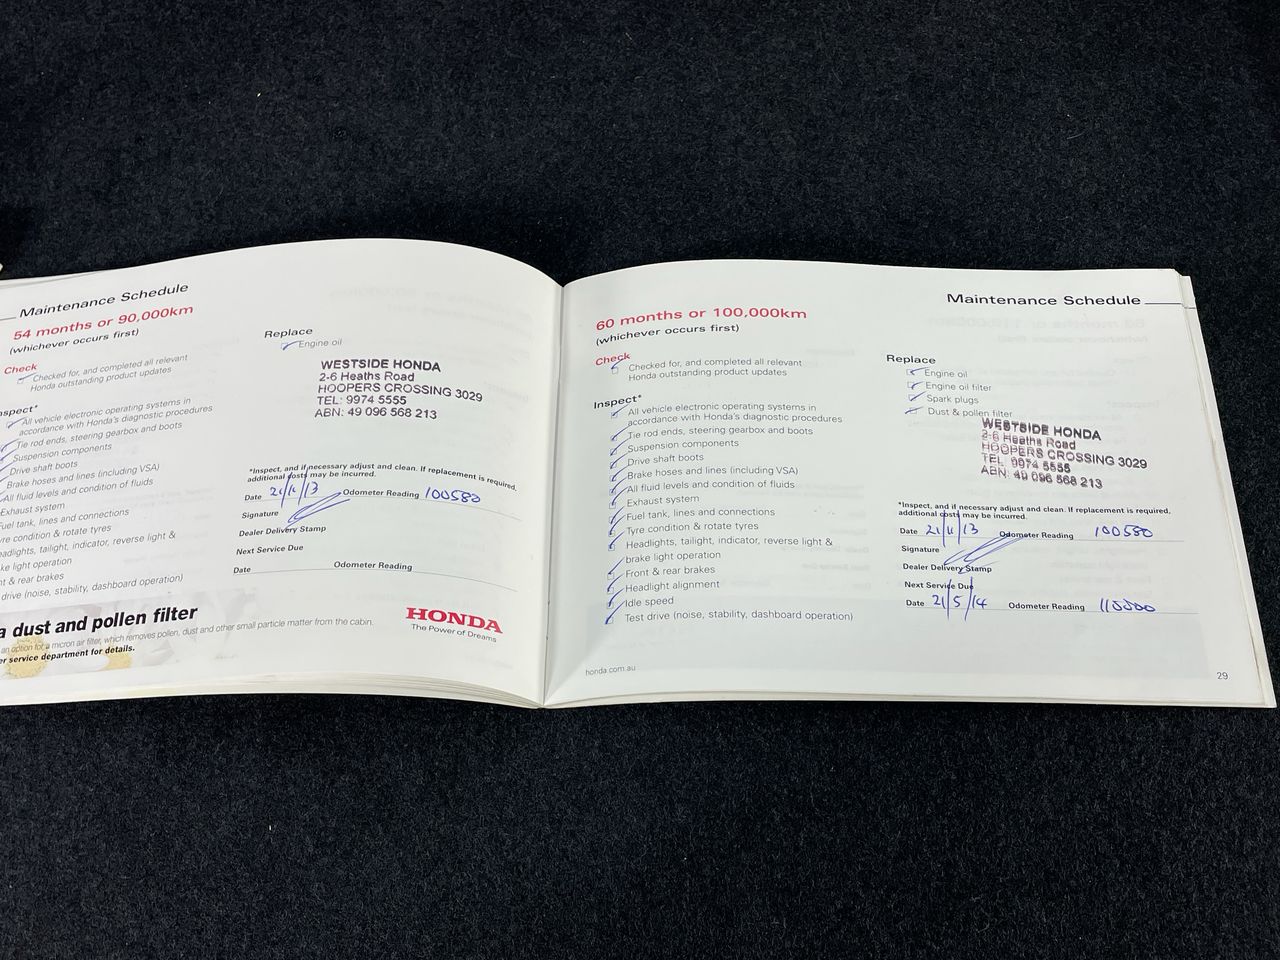 Maintenance Schedule
54 months or 90,000km
(whichever occurs first)
Check
Checked for, and completed all relevant
Honda outstanding product updates
nspect*
All vehicle electronic operating systems in
accordance with Honda's diagnostic procedures
Tie rod ends, steering gearbox and boots
Suspension components
Drive shaft boots
Brake hoses and lines (including VSA)
All fluid levels and condition of fluids
Exhaust system
Fuel tank, lines and connections
yre condition & rotate tyres
eadlights, tailight, indicator, reverse light &
ke light operation
nt & rear brakes
drive (noise, stability, dashboard operation)
Replace
Engine oil
WESTSIDE HONDA
2-6 Heaths Road
HOOPERS CROSSING 3029
TEL: 9974 5555
ABN: 49 096 568 213
*Inspect, and if necessary adjust and clean. If replacement is required,
additional costs may be incurred.
Date 21/11/13 Odometer Reading 100580
Signature
Dealer Delivery Stamp
Next Service Due
Date Odometer Reading
a dust and pollen filter
an option for a micron air filter, which removes pollen, dust and other small particle matter from the cabin.
er service department for details.
HONDA
The Power of Dreams
Maintenance Schedule
60 months or 100,000km
(whichever occurs first)
Check
Checked for, and completed all relevant
Honda outstanding product updates
Inspect*
All vehicle electronic operating systems in
accordance with Honda's diagnostic procedures
Tie rod ends, steering gearbox and boots
Suspension components
Drive shaft boots
Brake hoses and lines (including VSA)
All fluid levels and condition of fluids
Exhaust system
Fuel tank, lines and connections
Tyre condition & rotate tyres
Headlights, tailight, indicator, reverse light &
brake light operation
Front & rear brakes
Headlight alignment
Idle speed
Test drive (noise, stability, dashboard operation)
Replace
Engine oil
Engine oil filter
Spark plugs
Dust & pollen filter
WESTSIDE HONDA
2-6 Heaths Road
HOOPERS CROSSING 3029
TEL: 9974 5555
ABN: 49 096 568 213
*Inspect, and if necessary adjust and clean. If replacement is required,
additional costs may be incurred.
Date 21/11/13 Odometer Reading 100580
Signature
Dealer Delivery Stamp
Next Service Due
Date 21/5/14 Odometer Reading 110000
honda.com.au
29